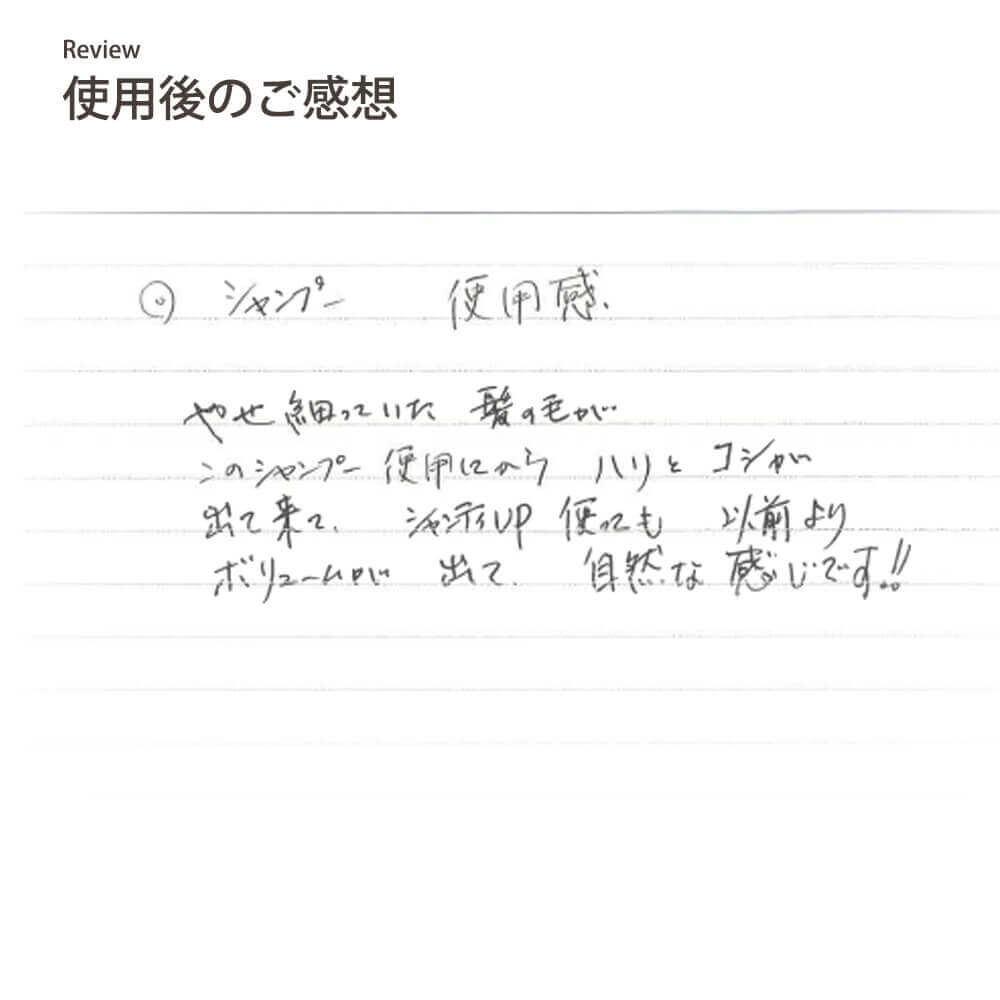 Review
使用後のご感想
シャンプー 使用感.
やせ細っていた 髪の毛が
このシャンプー 使用してから ハリと コシが
出て来て. シャンティUP 使っても 以前より
ボリュームが 出て. 自然な 感じです!!